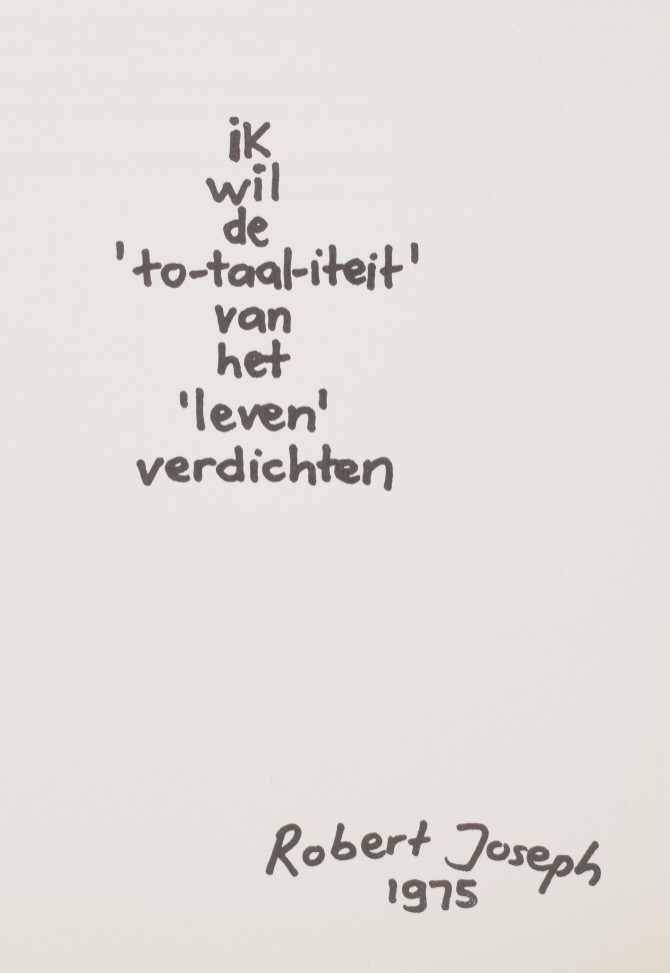 ik
wil
de
'to-taal-iteit'
van
het
'leven'
verdichten
Robert Joseph
1975